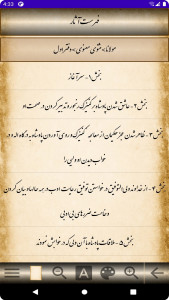 4:33
فهرست آثار
مولانا»مثنوی معنوی»دفتر اول
بخش ۱- سر آغاز
بخش ۲- عاشق شدن پادشاه بر کنیزک رنجور و تدبیر کردن در صحت او
بخش ۳- ظاهر شدن عجز حکیمان از معالجهٔ کنیزک و روی آوردن پادشاه به درگاه اله و در
خواب دیدن او ولیی را
بخش ۴- از خداوند ولی‌التوفیق در خواستن توفیق رعایت ادب در همه حالها و بیان کردن
وخامت ضررهای بی‌ادبی
بخش ۵- ملاقات پادشاه با آن ولی که در خوابش نمودند
A